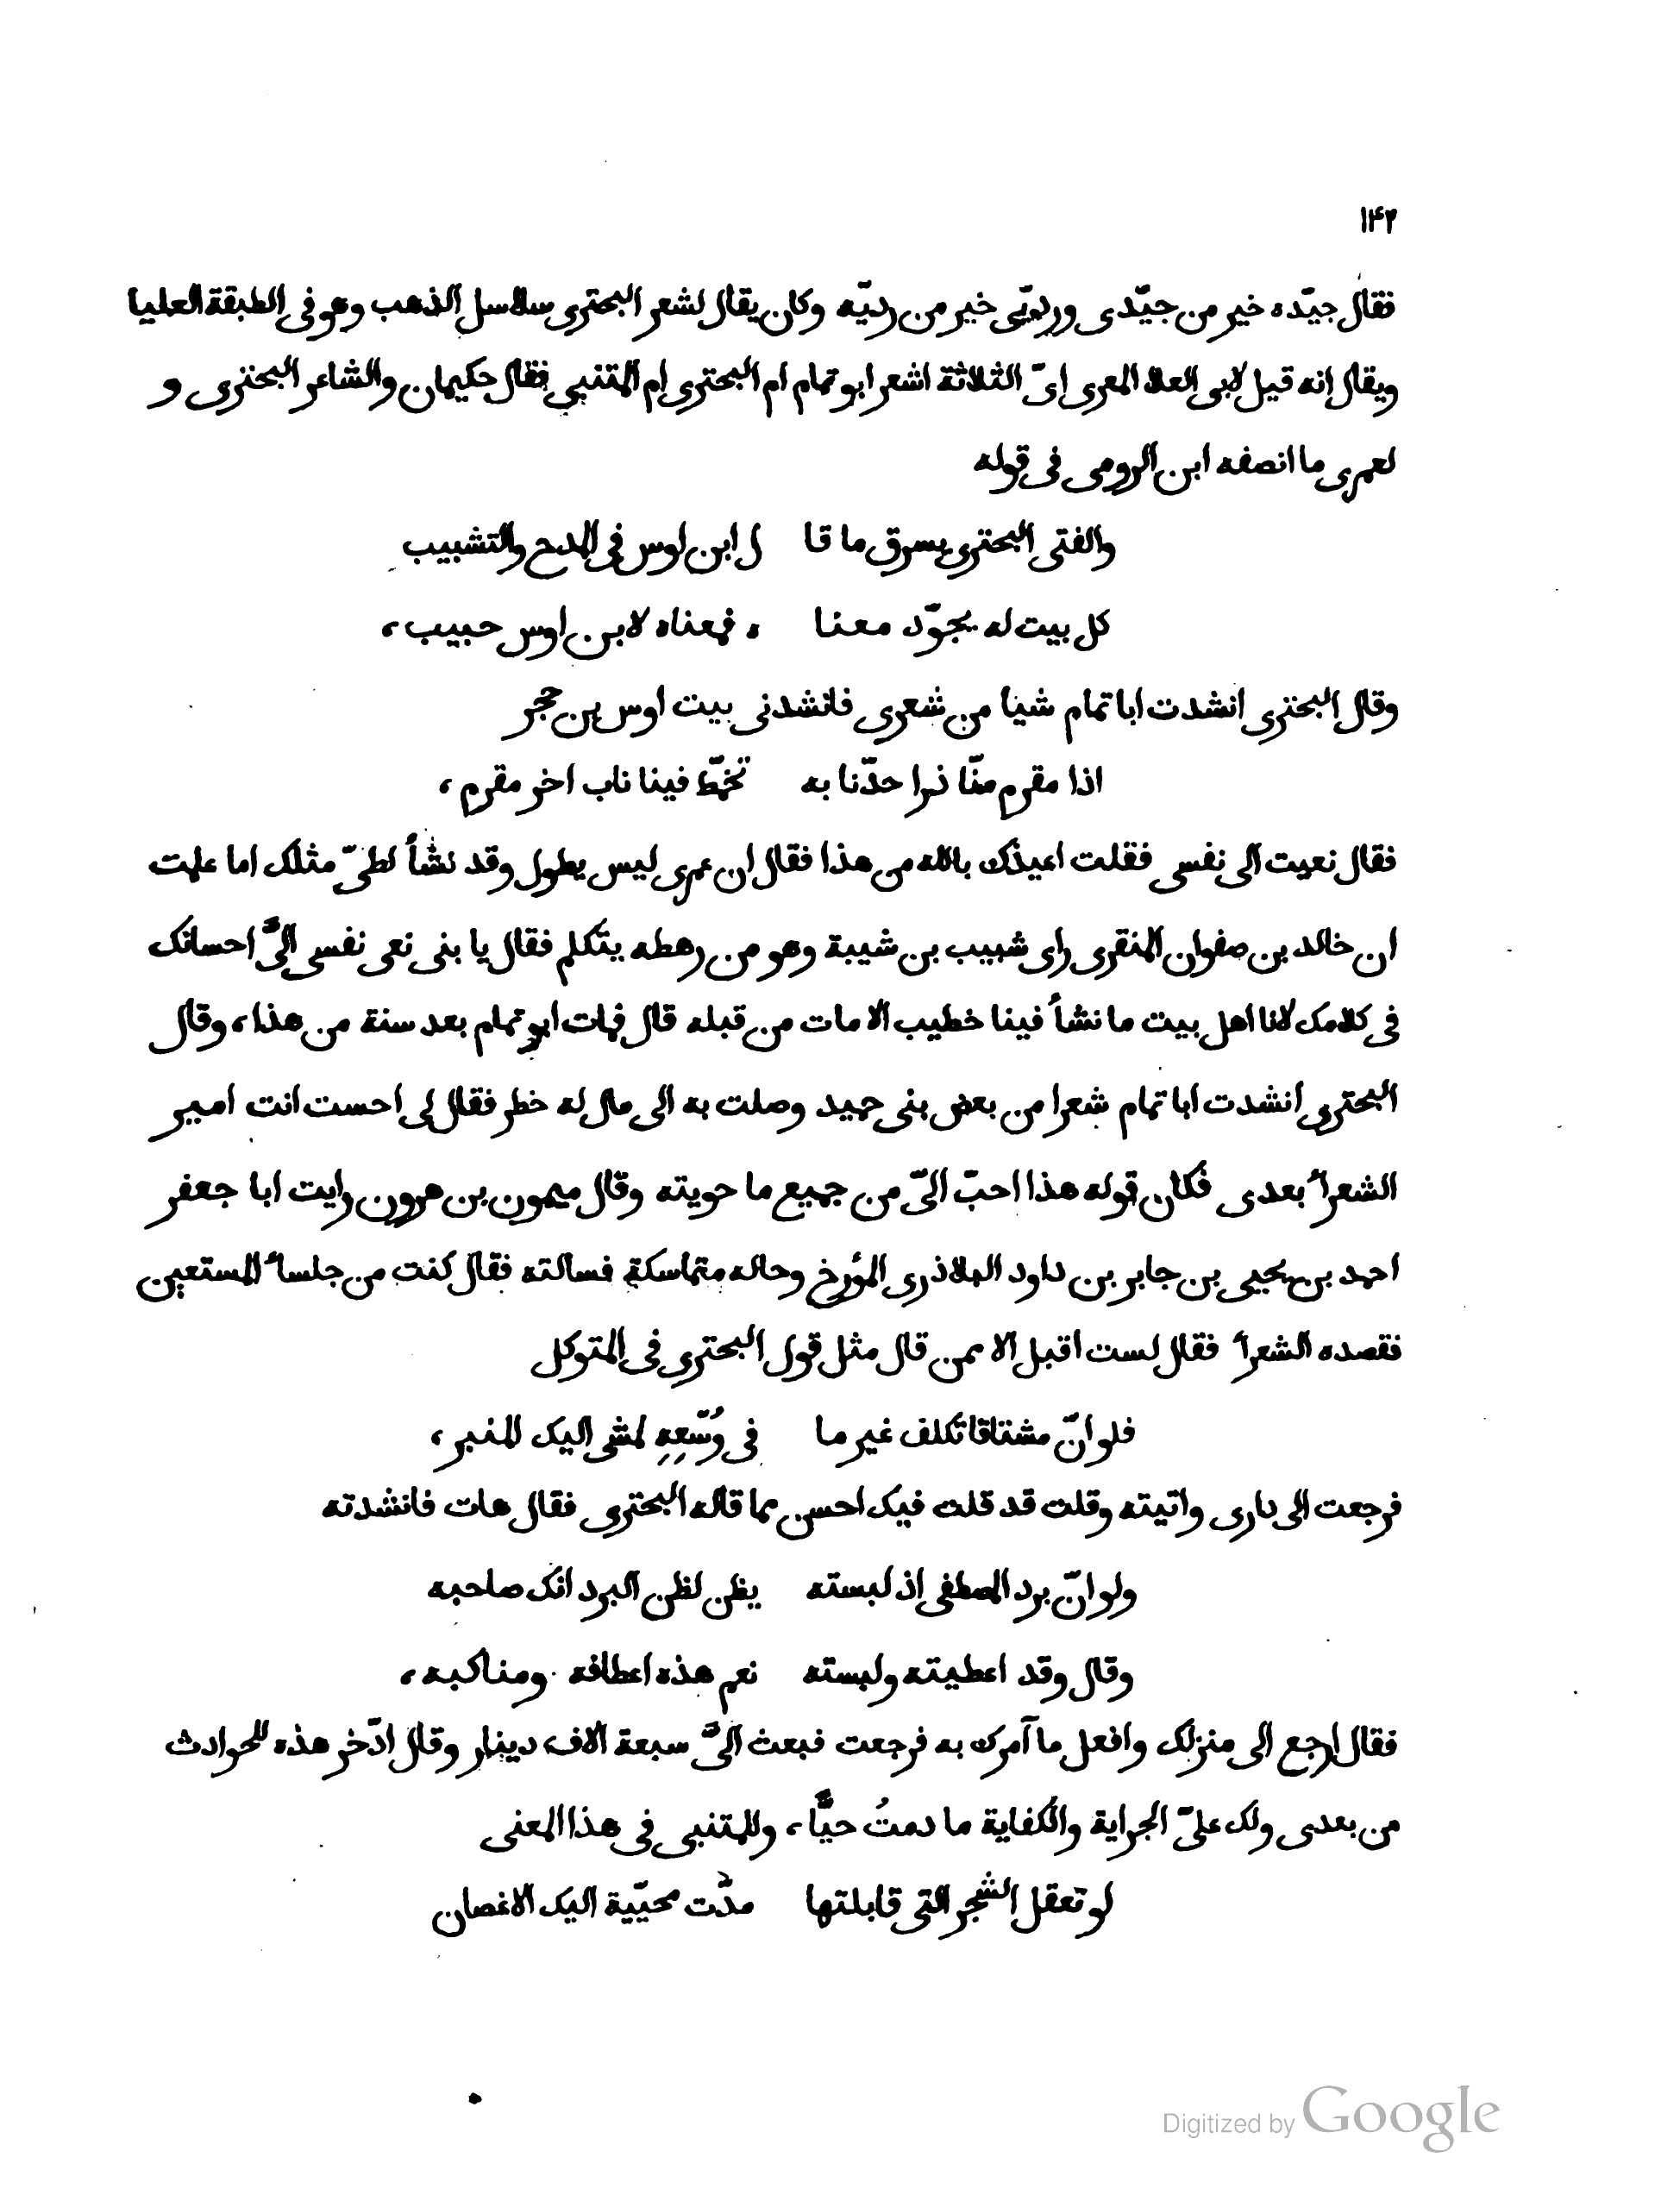 ۱۴۲
فقال جيّده خير من جيّدى ورديّى خير من رديّه وكان يقال لشعر البحترى سلاسل الذهب وهو فى الطبقة العليا
ويقال انه قيل لابى العلا المعرى اىّ الثلاثة اشعر ابو تمام ام البحترى ام المتنبى فقال حكيمان والشاعر البحترى و
لعمرى ما انصفه ابن الرومى فى قوله
والفتى البحترى يسرق ما قا ل ابن اوس فى المدح والتشبيب
كل بيت له يجوّد معنا ه فمعناه لابن اوس حبيب،
وقال البحترى انشدت ابا تمام شيا من شعرى فانشدنى بيت اوس بن حجر
اذا مقرم منّا ذرا حدّنا به تخمّط فينا ناب اخر مقرم،
فقال نعيت الى نفسى فقلت اعيذك بالله من هذا فقال ان عمرى ليس يطول وقد نشأ لطىّ مثلك اما علمت
ان خالد بن صفوان المنقرى راى شبيب بن شيبة وهو من رهطه يتكلم فقال يا بنى نعى نفسى الىَّ احسانك
فى كلامك لانا اهل بيت ما نشأ فينا خطيب الا مات من قبله قال فمات ابو تمام بعد سنة من هذا، وقال
البحترى انشدت ابا تمام شعرا من بعض بنى حميد وصلت به الى مال له خطر فقال لى احست انت امير
الشعرأ بعدى فكان قوله هذا احبّ الىّ من جميع ما حويته وقال ميمون بن هرون رايت ابا جعفر
احمد بن يحيى بن جابر بن داود البلاذرى المؤرخ وحاله متماسكة فسالته فقال كنت من جلسأ المستعين
فقصده الشعرأ فقال لست اقبل الا ممن قال مثل قول البحترى فى المتوكل
فلو انّ مشتاقا تكلف غير ما فى وُسْعِهِ لمشى اليك المنبر،
فرجعت الى دارى واتيته وقلت قد قلت فيك احسن مما قاله البحترى فقال هات فانشدته
ولو انّ برد المصطفى اذ لبسته يظن لظن البرد انك صاحبه
وقال وقد اعطيته ولبسته نعم هذه اعطافه ومناكبه،
فقال ارجع الى منزلك وافعل ما آمرك به فرجعت فبعث الىَّ سبعة الاف دينار وقال ادّخر هذه للحوادث
من بعدى ولك علىّ الجراية والكفاية ما دمتُ حيًّا، وللمتنبى فى هذا المعنى
لو تعقل الشجر التى قابلتها مدّت محيّية اليك الاغصان
Digitized by Google